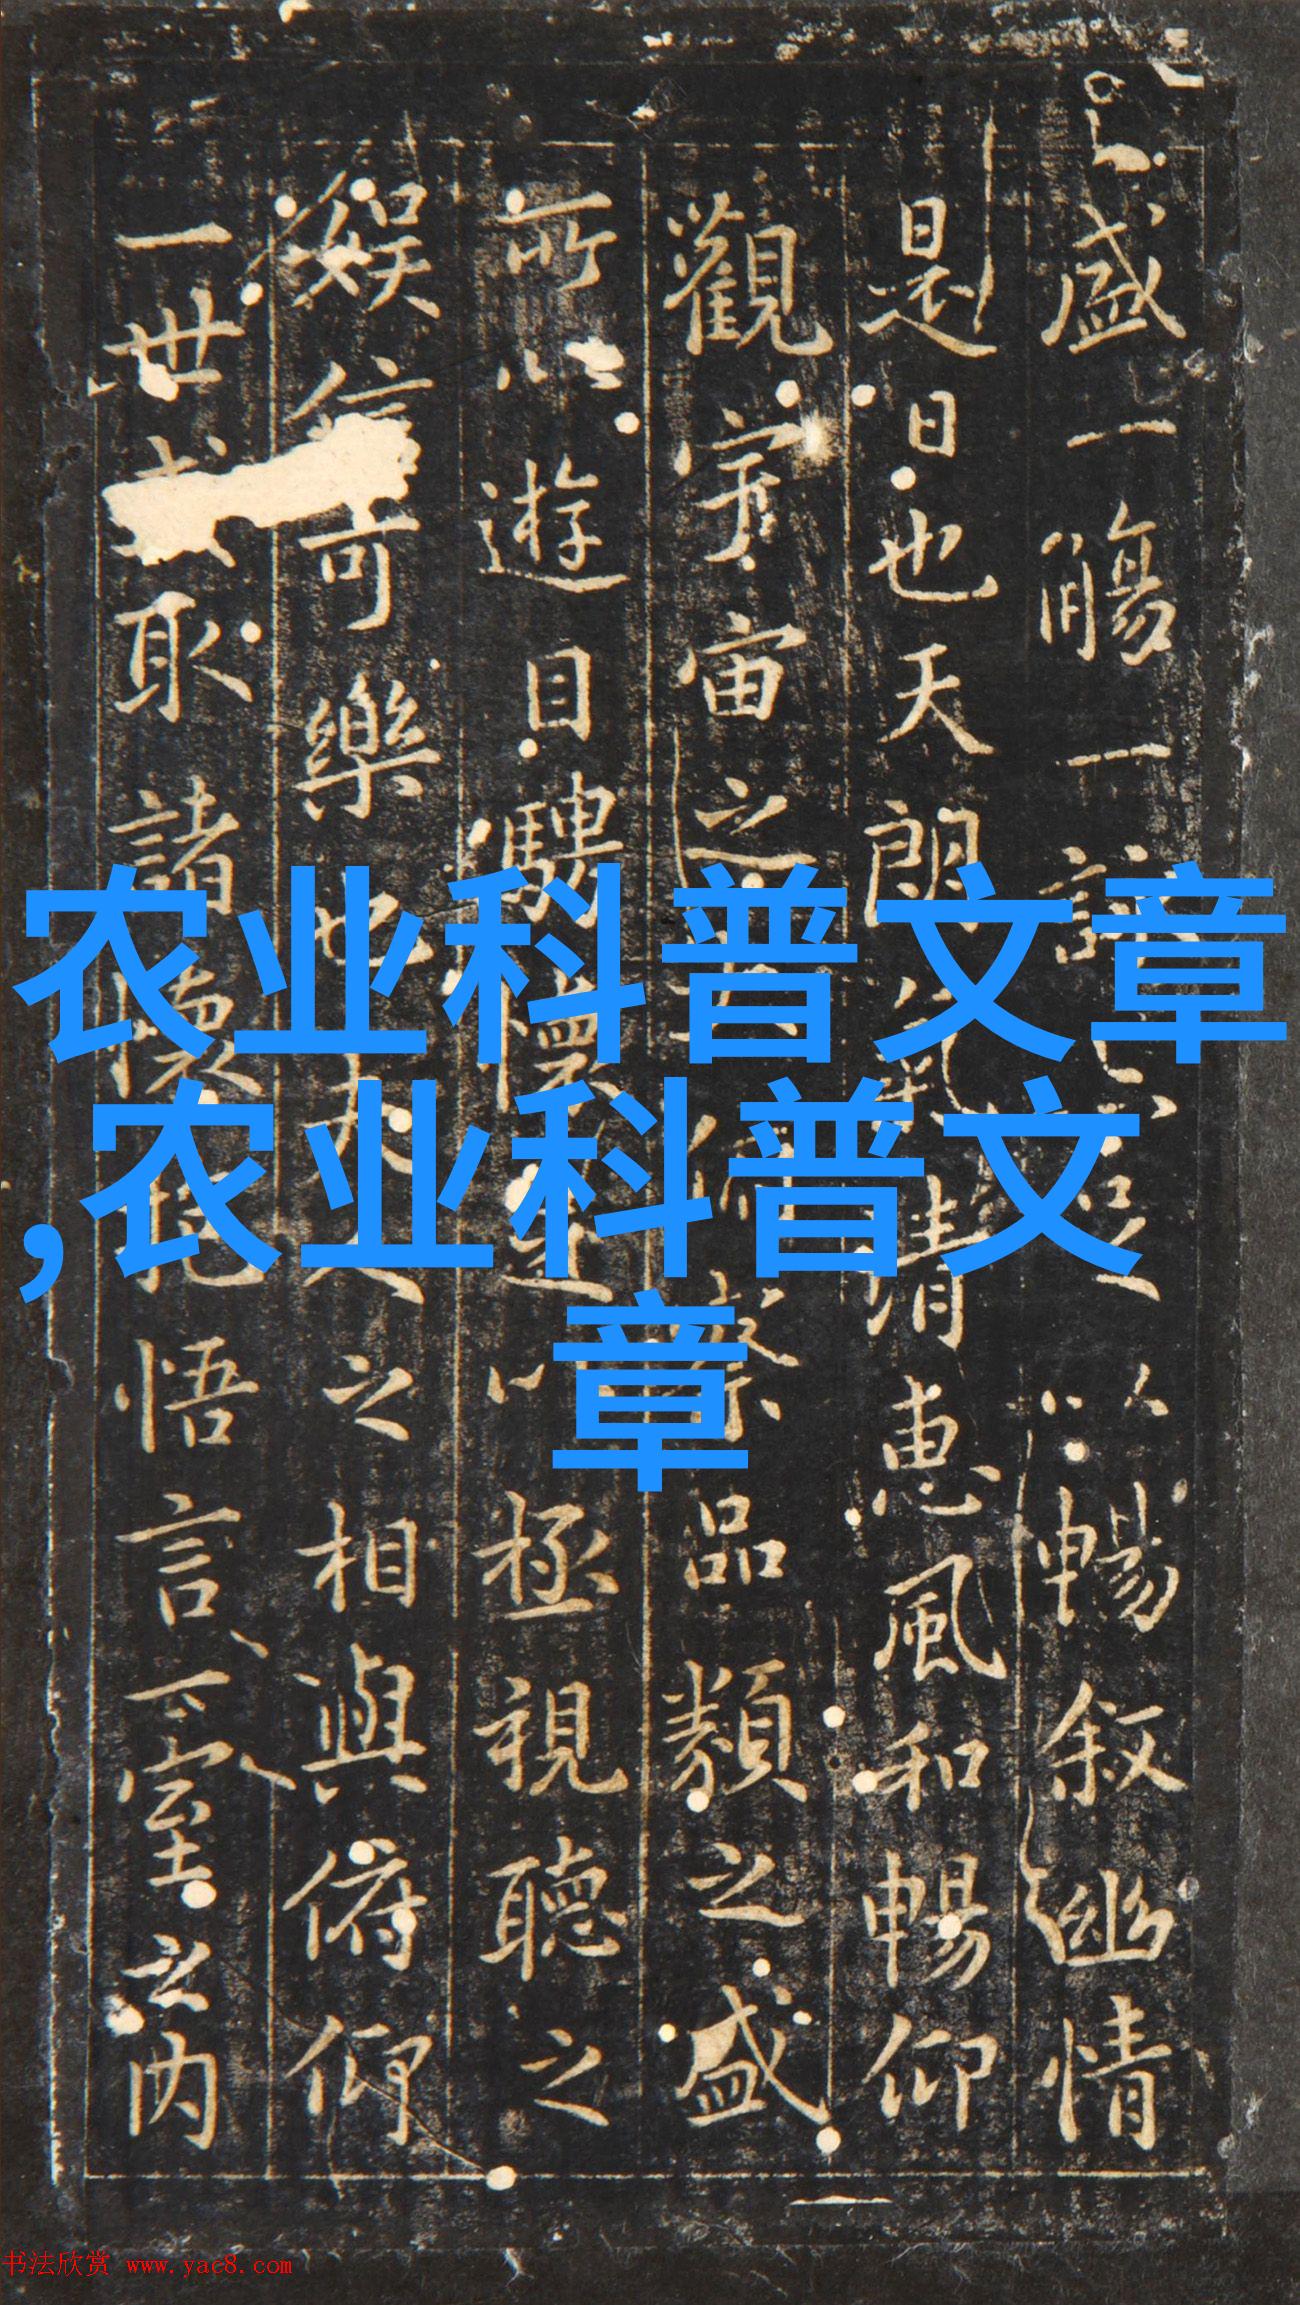 盛一觴一詠亦足以暢叙幽情
是日也天朗氣清惠風和暢仰
觀宇宙之大俯察品類之盛
所以遊目騁懷足以極視聽之
娛信可樂也夫人之相與俯仰
一世或取諸懷抱悟言一室之内
农业科普文章
,农业科普文
章
书法欣赏 www.yac8.com